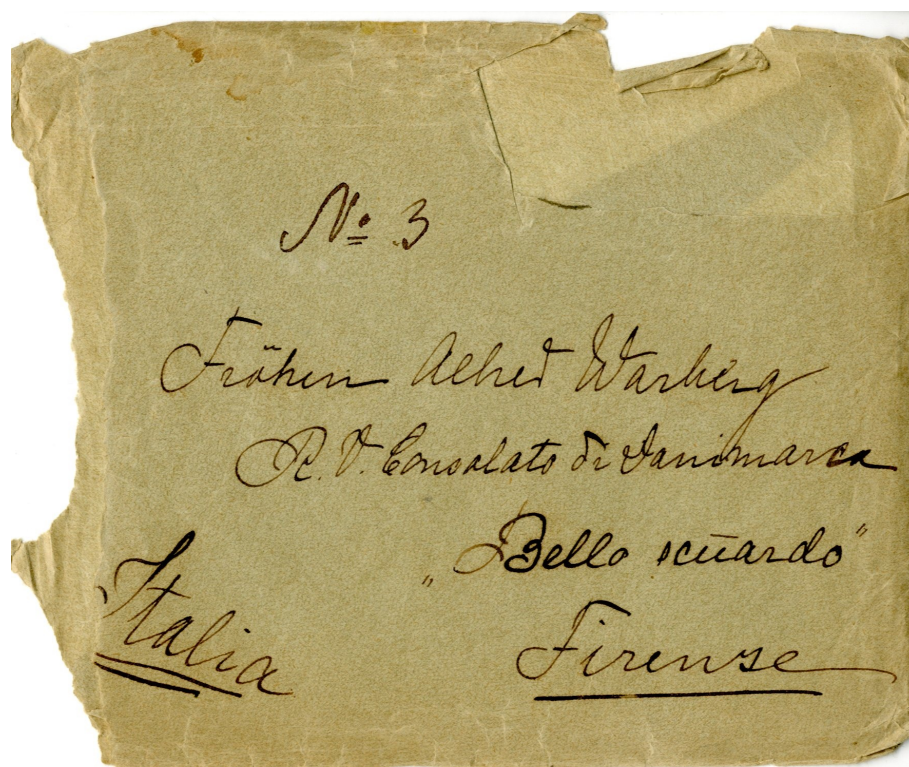 No 3
Fröken Alhed Warberg
R. V. Consolato di Danimarca
„Bello scuardo”
Italia
Firense